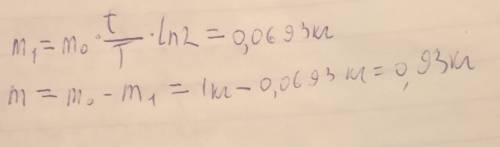 m₁ = m₀ · t/T · ln2 = 0,0693кг
m = m₀ - m₁ = 1кг - 0,0693 кг = 0,93кг